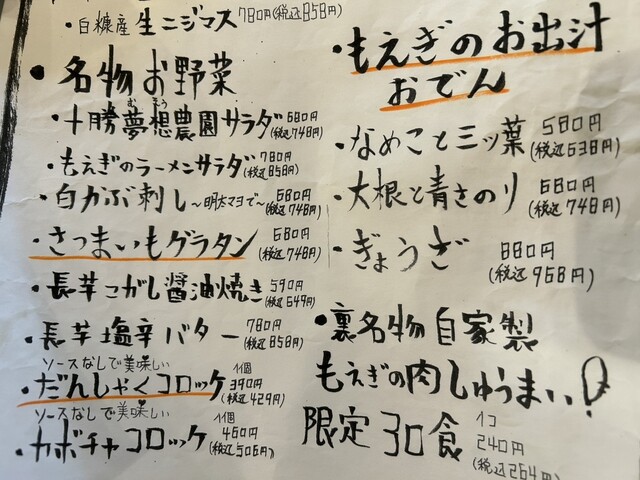 ・白糠産 生ニジマス 780円(税込858円)
・名物お野菜
・十勝夢想農園サラダ 680円(税込748円)
むそう
・もえぎのラーメンサラダ 780円(税込858円)
・白かぶ刺し〜明太マヨで〜 680円(税込748円)
・さつまいもグラタン 680円(税込748円)
・長芋こがし醬油焼き 590円(税込649円)
・長芋塩辛バター 780円(税込858円)
ソースなしで美味しい
・だんしゃくコロッケ 1個 390円(税込429円)
ソースなしで美味しい
・カボチャコロッケ 1個 460円(税込506円)
・もえぎのお出汁
おでん
・なめこと三ッ葉 580円(税込638円)
・大根と青さのり 680円(税込748円)
・ぎょうざ 880円(税込968円)
・裏名物自家製
もえぎの肉しゅうまい!
限定30食 1コ 240円(税込264円)